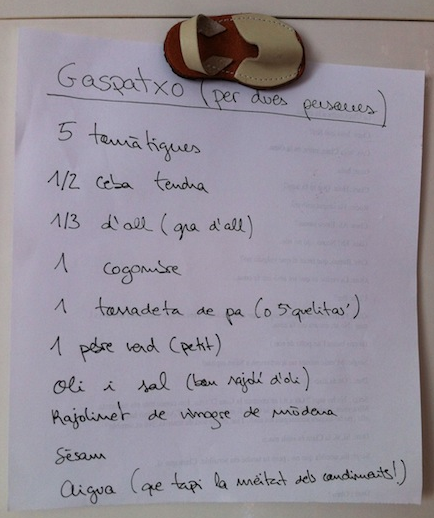 Gaspatxo (per dues persones)
5 tomàtigues
1/2 ceba tendra
1/3 d'all (gra d'all)
1 cogombre
1 torradeta de pa (o 5 'quelitas')
1 pebre verd (petit)
Oli i sal (bon rajolí d'oli)
Rajolinet de vinagre de mòdena
Sèsam
Aigua (que tapi la meitat dels condiments!)